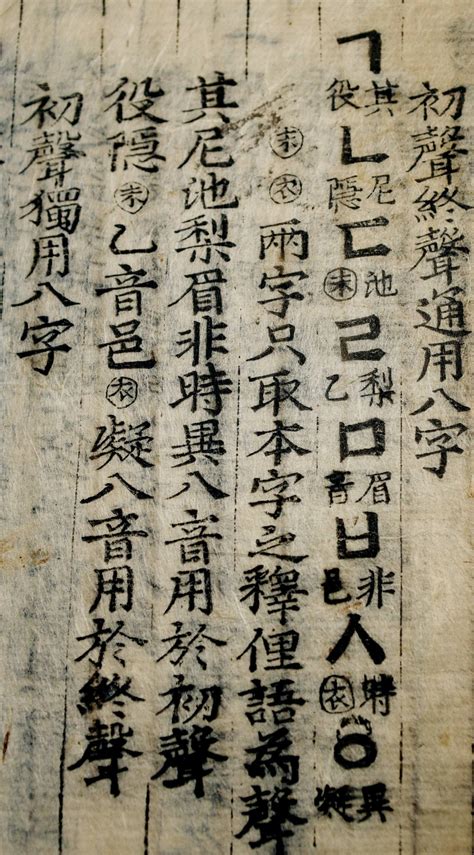 初聲終聲通用八字
ㄱ其役ㄴ尼隱ㄷ池㊀末ㄹ梨乙ㅁ眉音ㅂ非邑ㅅ時衣ㆁ異凝
末衣兩字只取本字之釋俚語為聲
其尼池梨眉非時異八音用於初聲
役隱末乙音邑衣凝八音用於終聲
初聲獨用八字